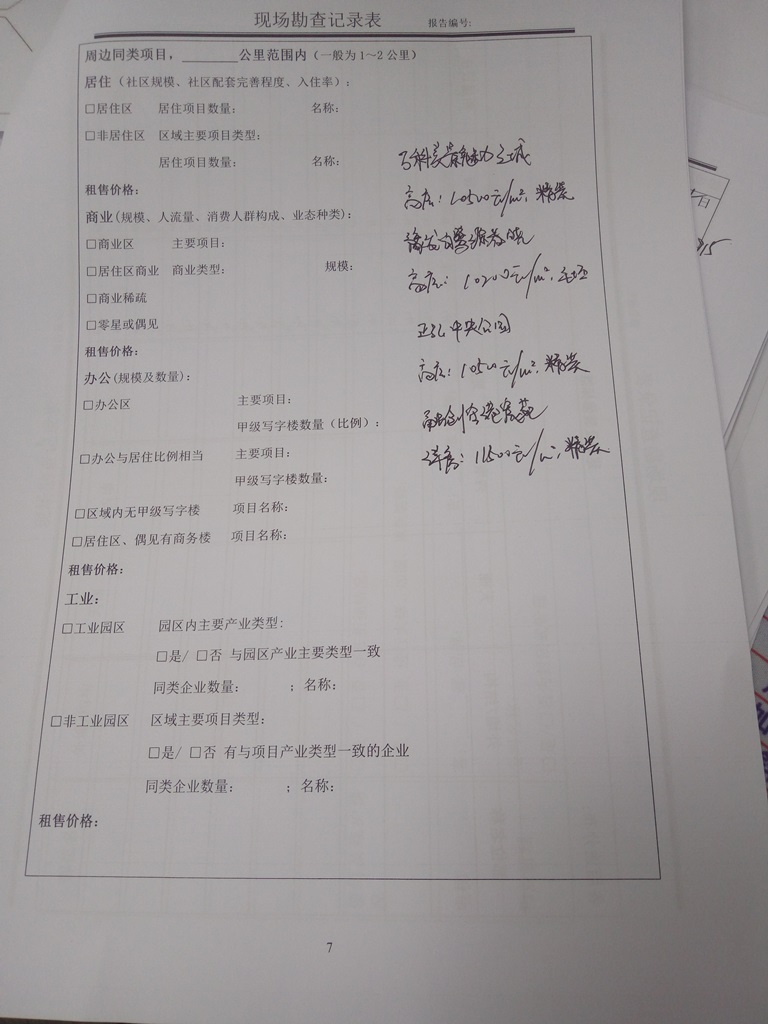 现场勘查记录表 报告编号:
周边同类项目，________公里范围内（一般为1～2公里）
居住（社区规模、社区配套完善程度、入住率）:
□居住区 居住项目数量: 名称:
□非居住区 区域主要项目类型:
居住项目数量: 名称:
万科美景魅力之城
租售价格:
高层: 10500元/m², 精装
商业(规模、人流量、消费人群构成、业态种类):
□商业区 主要项目:
□居住区商业 商业类型: 规模:
高层: 10200元/m², 毛坯
□商业稀疏
□零星或偶见
正弘中央公园
租售价格:
高层: 10500元/m², 精装
办公(规模及数量):
□办公区 主要项目:
甲级写字楼数量（比例）:
融创金港宸苑
□办公与居住比例相当 主要项目:
洋房: 11500元/m², 精装
甲级写字楼数量:
□区域内无甲级写字楼 项目名称:
□居住区、偶见有商务楼 项目名称:
租售价格:
工业:
□工业园区 园区内主要产业类型:
□是/ □否 与园区产业主要类型一致
同类企业数量: ; 名称:
□非工业园区 区域主要项目类型:
□是/ □否 有与项目产业类型一致的企业
同类企业数量: ; 名称:
租售价格:
7